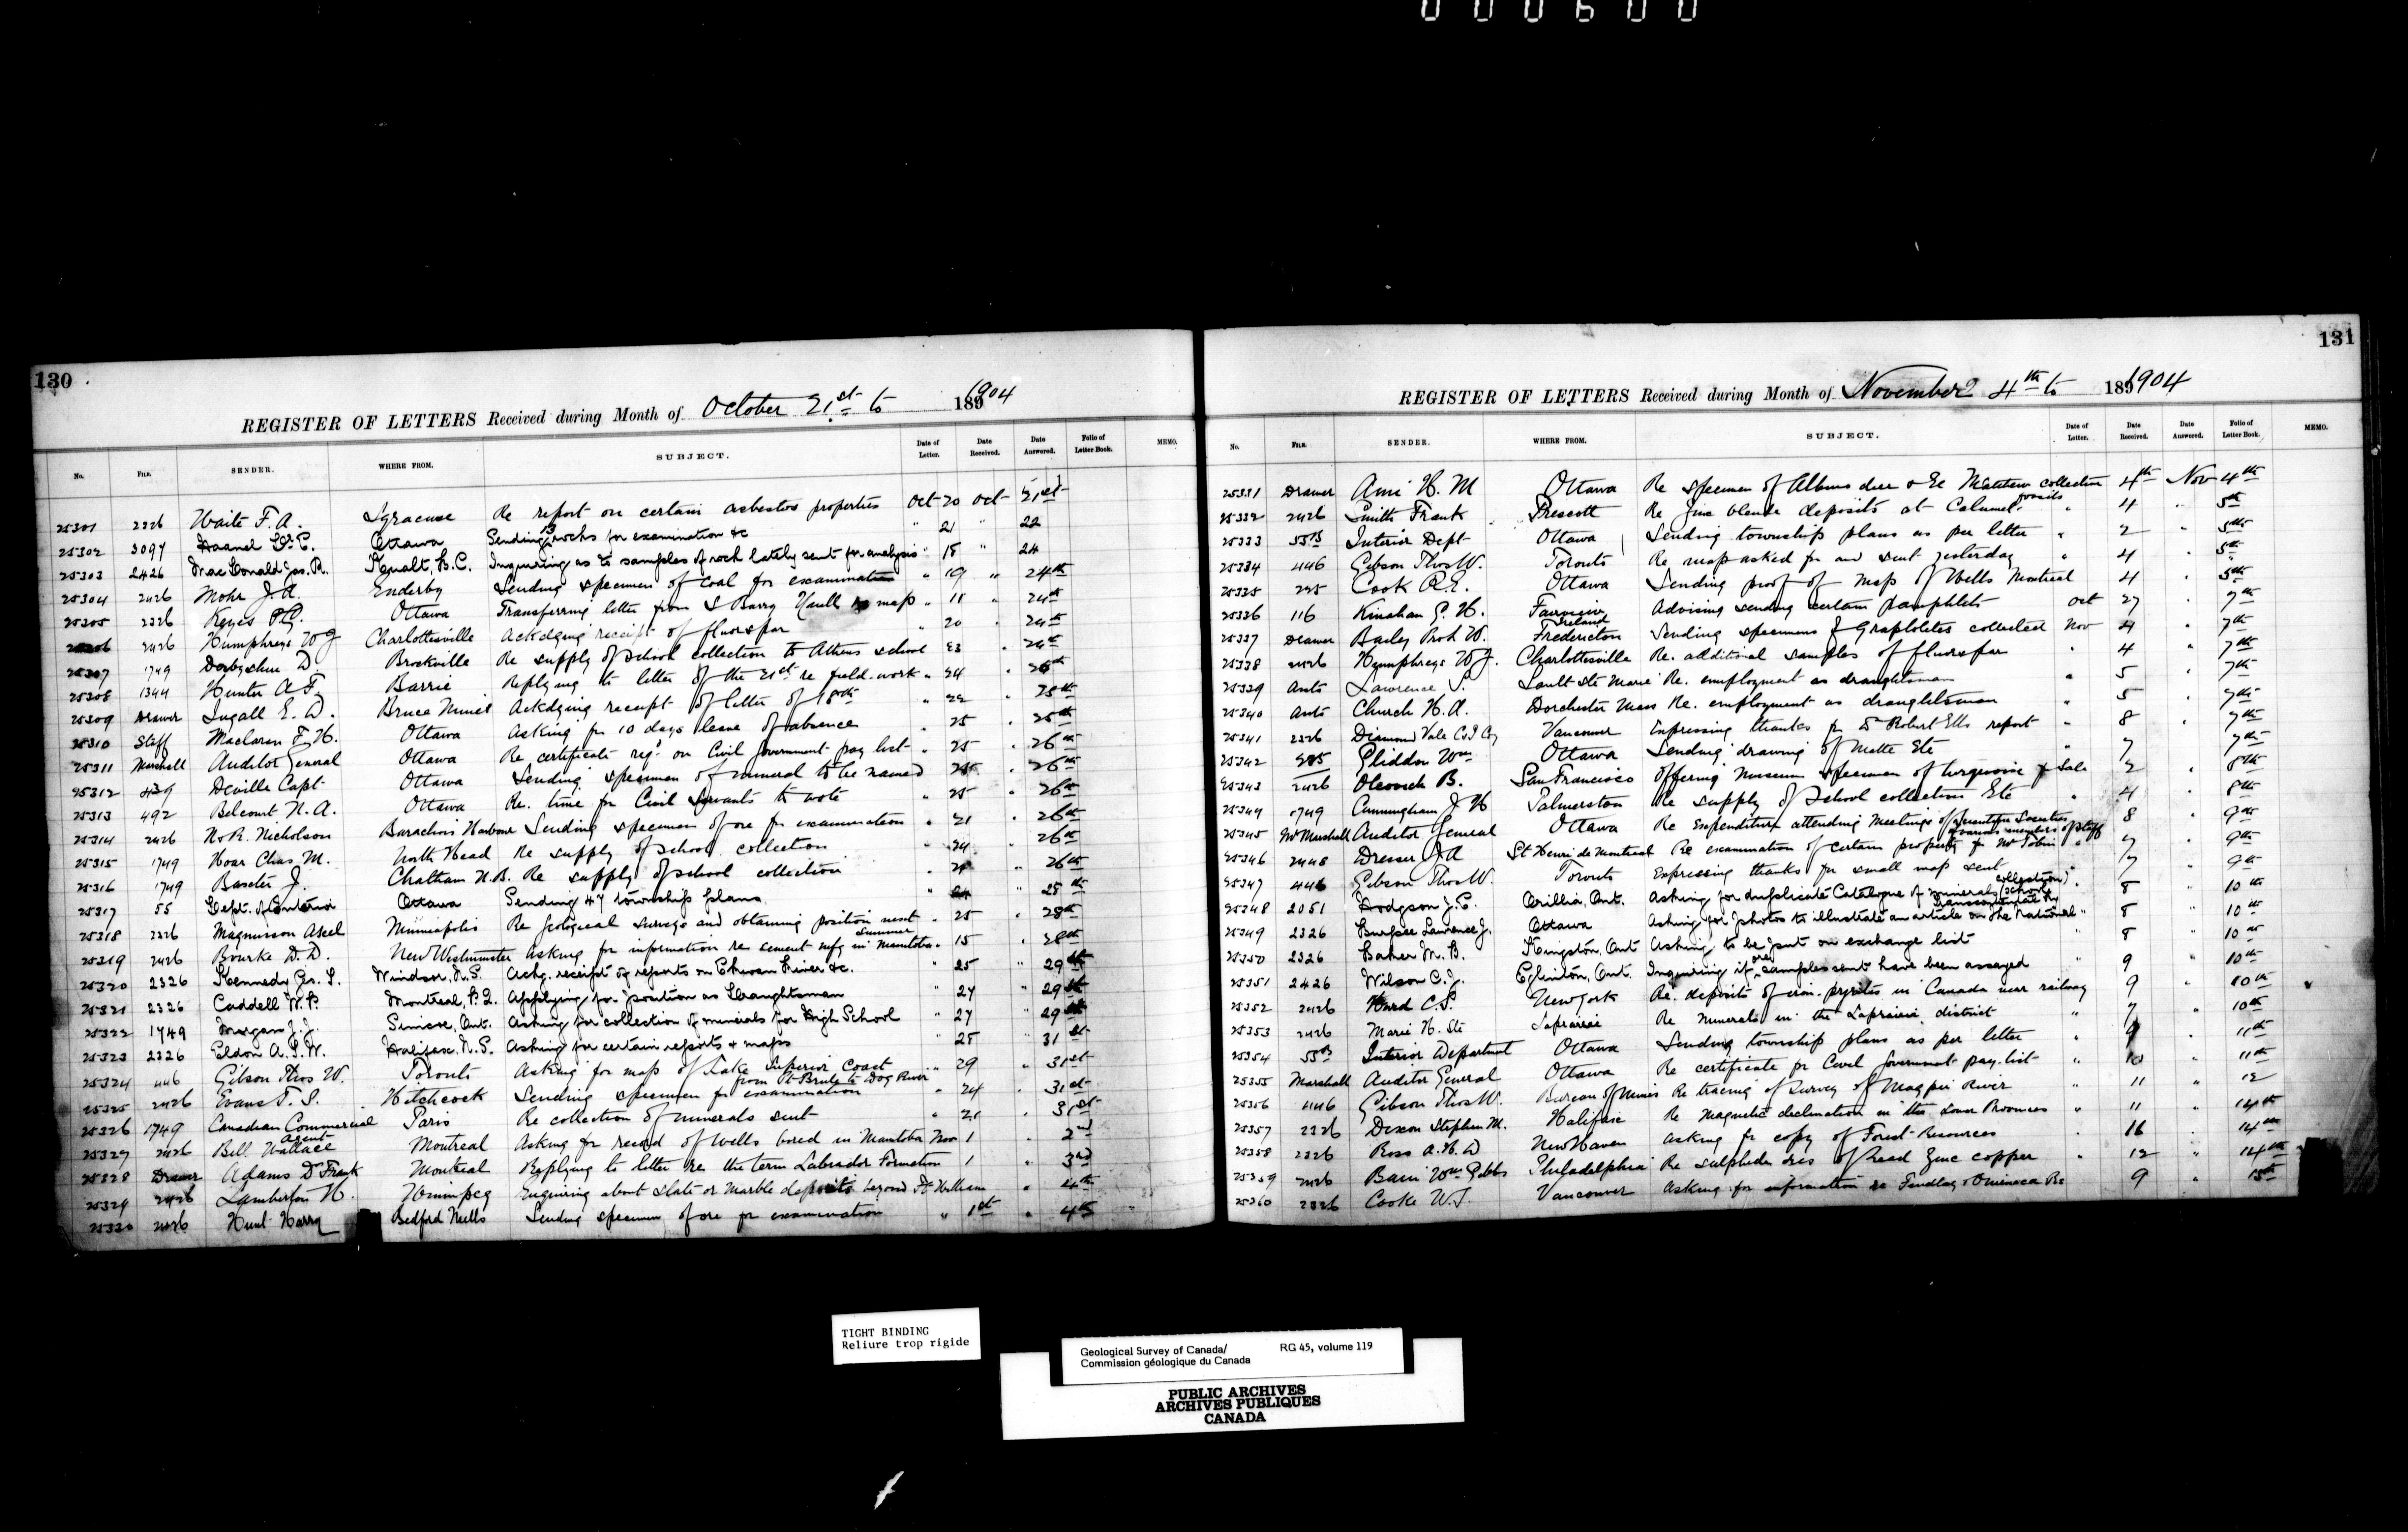 000600
130
REGISTER OF LETTERS Received during Month of October 21st to 1891904
No. FILE. SENDER. WHERE FROM. SUBJECT. Date of Letter. Date Received. Date Answered. Folio of Letter Book. MEMO.
25301 2326 Waite F. A. Syracuse Re report on certain asbestos properties Oct 20 Oct 21st
25302 3097 Haanel Dr. E. Ottawa Sending 13 rocks for examination &c " 21 " 22
25303 2426 MacDonald Jas. R. B.C. Inquiring as to samples of rock lately sent for analysis " 18 " 24
25304 2426 Mohr J. A. Enderby Sending specimen of coal for examination " 19 " 24th
25305 2326 Keyes P.C. Ottawa Transferring letter from S Barry re map " 11 " 24th
25306 2426 Humphreys W J Charlottesville Ackdging receipt of fluorspar " 20 24th
25307 1749 Derbyshire D. Brockville Re supply of school collection to Athens school " 23 " 24th
25308 1344 Hunter A F. Barrie Replying to letter of the 21st re field-work " 24 " 26th
25309 Drawer Ingall E. D. Bruce Mines Ackdging receipt of letter of 18th " 22 25th
25310 Staff Maclaren F. H. Ottawa Asking for 10 days leave of absence " 25 " 25th
25311 Marshall Auditor General Ottawa Re certificate req'd on Civil Government pay list " 25 " 26th
25312 439 Deville Capt Ottawa Sending specimen of mineral to be named " 25 " 26th
25313 492 Belcourt N. A. Ottawa Re. time for Civil Servants to vote " 25 " 26th
25314 2426 N. R. Nicholson Barachois Harbour Sending specimen of ore for examination " 21 " 26th
25315 1749 Hoar Chas M. North Head Re supply of school collection " 24 26th
25316 1749 Baxter J. Chatham N.B. Re supply of school collection " 24 " 26th
25317 55 Dept. of Interior Ottawa Sending 47 township plans " 24 " 28th
25318 2326 Magnusson Axel Minneapolis Re Geological surveys and obtaining position next summer " 25 " 28th
25319 2426 Bourke D. D. New Westminster Asking for information re cement mfg in Manitoba " 15 " 28th
25320 2326 Kennedy Geo. T. Windsor, N.S. Ackg. receipt of reports on River &c. " 25 " 29th
25321 2326 Caddell W. P. Montreal, P.Q. Applying for position as Draughtsman " 27 " 29th
25322 1749 Morgan J. J. Simcoe, Ont. Asking for collection of minerals for High School " 27 " 29th
25323 2326 Eldon A. S. W. Halifax, N.S. Asking for certain reports & maps " 28 31st
25324 446 Gibson Thos W. Toronto Asking for map of Lake Superior Coast from Pt Brule to Dog River " 29 " 31st
25325 2426 Evans T. S. Hitchcock Sending specimen for examination " 24 " 31st
25326 1749 Canadian Commercial Agent Paris Re collection of minerals sent " 21 " 31st
25327 2426 Bell Wallace Montreal Asking for record of wells bored in Manitoba Nov 1 " 2nd
25328 Drawer Adams Dr Frank Montreal Replying to letter re the term Labrador Formation 1 " 3rd
25329 2426 Lamberton H. Winnipeg Enquiring about slate or marble deposits beyond Ft William " 4th
25330 2426 Hunt Harry Bedford Mills Sending specimen of ore for examination " 1st " 4th
131
REGISTER OF LETTERS Received during Month of November 4th to 1891904
No. FILE. SENDER. WHERE FROM. SUBJECT. Date of Letter. Date Received. Date Answered. Folio of Letter Book. MEMO.
25331 Drawer Ami H. M Ottawa Re specimen of & Matthew collection fossils 4th Nov 4th
25332 2426 Smith Frank Prescott Re zinc blende deposits at Calumet " 4 " 5th
25333 55B Interior Dept Ottawa Sending township plans as per letter " 2 " 5th
25334 446 Gibson Thos W. Toronto Re map asked for and sent yesterday " 4 " 5th
25335 295 Cook R.E. Ottawa Sending proof of map of Wells Montreal 4 " 5th
25336 116 Kinahan G. H. Fairview Ireland Advising sending certain pamphlets Oct 27 " 7th
25337 Drawer Bailey Prof W. Fredericton Sending specimens of Graptolites collected Nov 4 " 7th
25338 2426 Humphreys W J. Charlottesville Re. additional samples of fluorspar " 4 " 7th
25339 Ants Lawrence S. Sault Ste Marie Re. employment as draughtsman " 5 " 7th
25340 Ants Church H. A. Dorchester Mass Re. employment as draughtsman " 5 " 7th
25341 2326 Diamond Vale C & I Coy Vancouver Expressing thanks for Dr Robert Ells report " 8 " 7th
25342 Gliddon Wm Ottawa Sending drawing of Matte Etc " 7 7th
25343 2426 Olcovich B. San Francisco Offering Museum specimen of turquoise for Sale 2 " 8th
25344 1749 Cunningham J. H Palmerston Re supply of School collection Etc " 4 " 8th
25345 Mr Marshall Auditor General Ottawa Re Expenditure attending Meetings of Scientific Societies of various members of staff 8 " 9th
25346 2448 Dresser J. A St Henri de Montreal Re examination of certain property for Mr Tobin " 7 " 9th
25347 446 Gibson Thos W. Toronto Expressing thanks for small map sent " 7 " 9th
25348 2051 Hodgson J. E. Orillia, Ont. Asking for duplicate Catalogue of minerals (school collection) " 8 " 10th
25349 2326 Burpee Lawrence J. Ottawa Asking for photos to illustrate an article on the National Transcontinental Ry " 8 " 10th
25350 2326 Baker M. B. Kingston, Ont Asking to be put on exchange list " 8 " 10th
25351 2426 Wilson C. J. Eglinton, Ont. Inquiring if ore samples sent have been assayed " 9 " 10th
25352 2426 Ward C. S. New York Re. deposits of iron-pyrites in Canada near railway 9 " 10th
25353 2426 Marie H. Ste Laprairie Re minerals in the Laprairie district " 7 " 10th
25354 55B Interior Department Ottawa Sending township plans as per letter " 9 " 11th
25355 Marshall Auditor General Ottawa Re certificate for Civil Government pay-list " 10 " 11th
25356 446 Gibson Thos W. Bureau of Mines Re tracing of Survey of Magpie River " 11 " 12
25357 2326 Dixon Stephen M. Halifax Re magnetic declination in the Lower Provinces " 11 " 14th
25358 2326 Ross A. H. D New Haven Asking for copy of Forest Resources " 16 " 14th
25359 2426 Wm Gibbs Philadelphia Re sulphide ores of Lead Zinc copper " 12 " 14th
25360 2326 Cooke W. J. Vancouver Asking for information re Findlay & Omineca Rs 9 " 15th
TIGHT BINDING
Reliure trop rigide
Geological Survey of Canada/ RG 45, volume 119
Commission géologique du Canada
PUBLIC ARCHIVES
ARCHIVES PUBLIQUES
CANADA